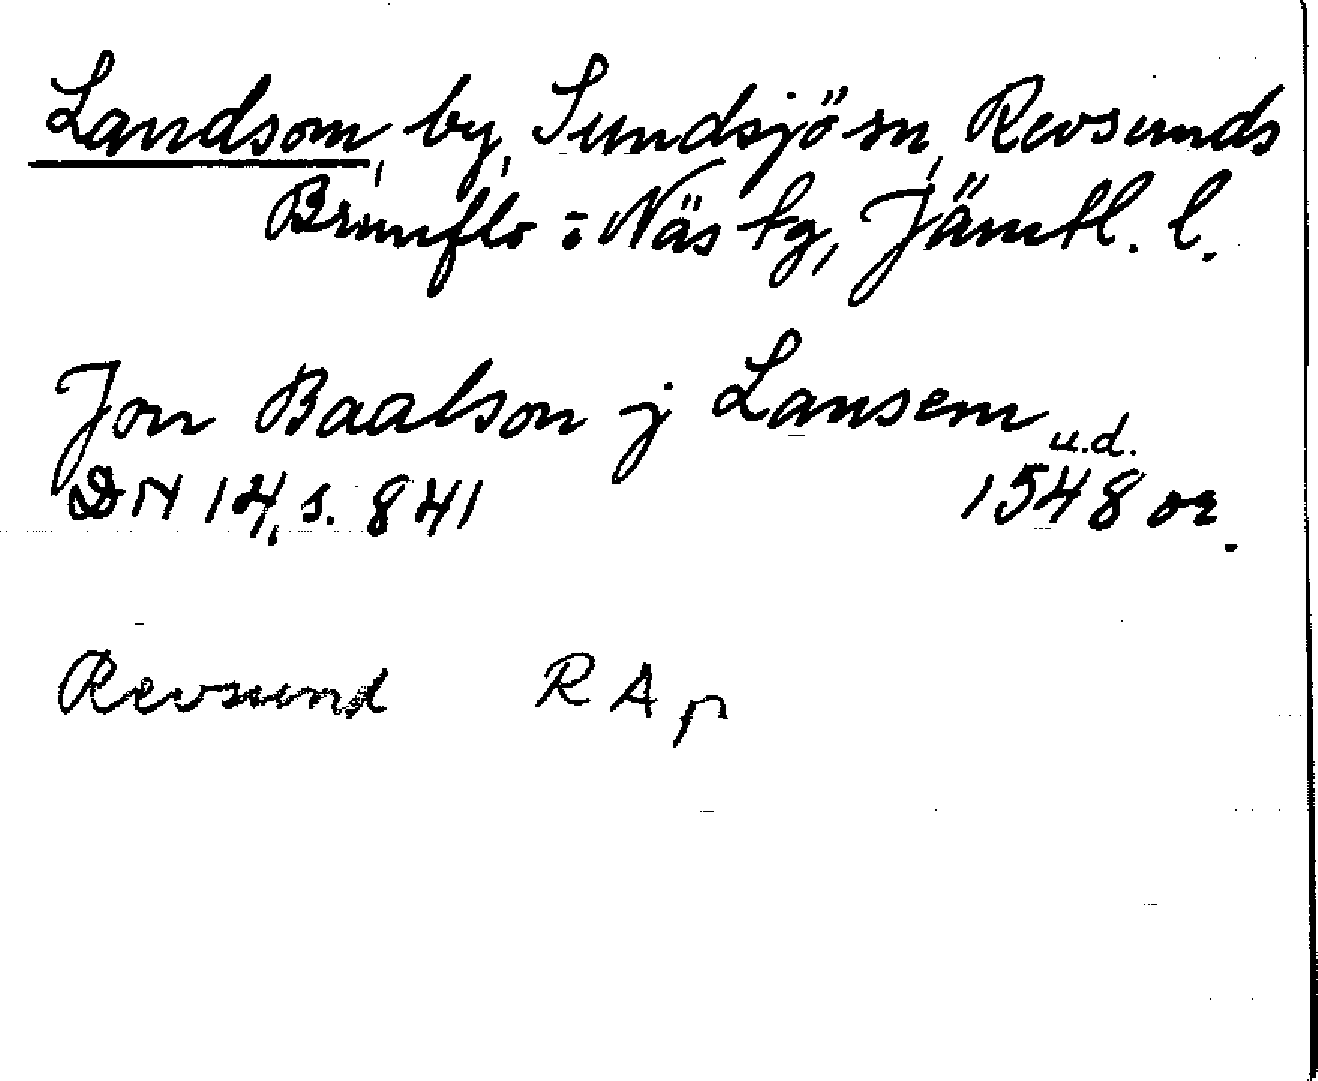 Landsom, by, Sundsjö sn, Revsunds
Brunflo o Näs tg, Jämtl. l.
Jon Baalson j Lansem
u.d.
DN 14, s. 841 1548 or.
Revsund RAp